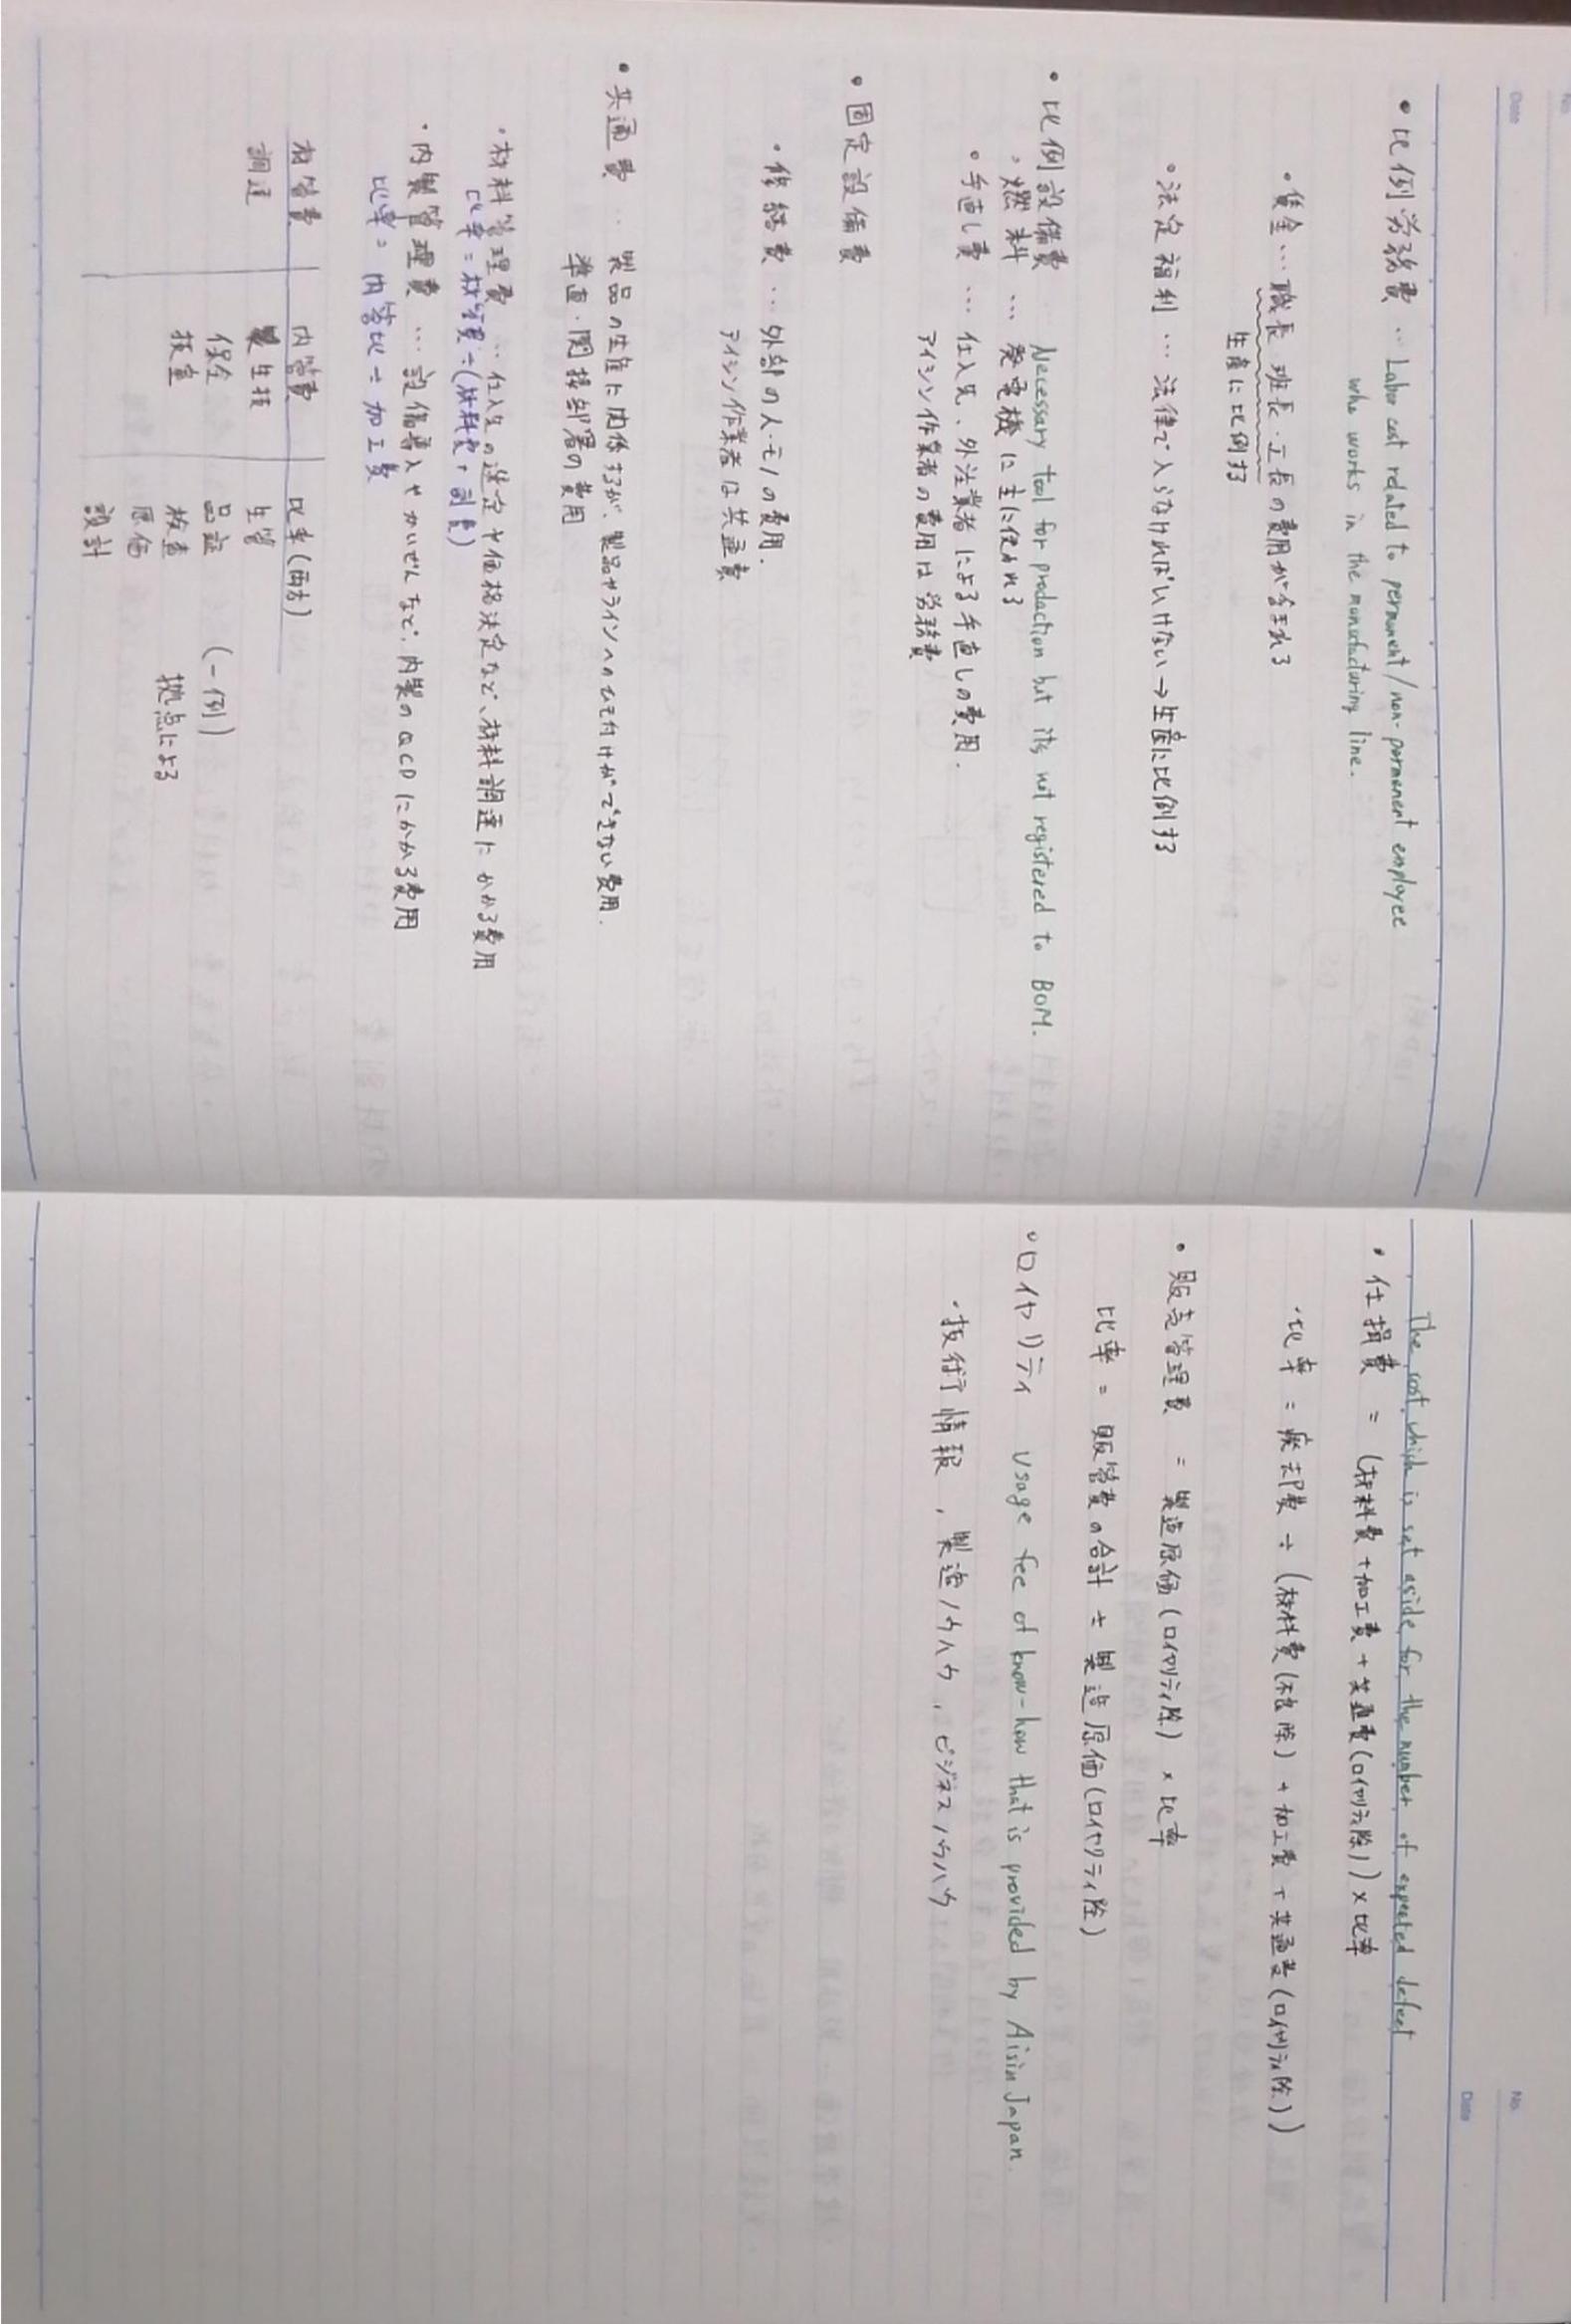 Date
・比例労務費 … Labor cost related to permanent/non-permanent employee
who works in the manufacturing line.
・賃金… 職長 班長・工長の費用が含まれる
生産に比例する
・法定福利 … 法律で入らなければいけない→生産に比例する
・比例設備費 … Necessary tool for production but its not registered to BOM.
・燃料 … 発電機に主に使われる
・手直し費 … 仕入先、外注業者による手直しの費用.
アイシン作業者の費用は労務費
・固定設備費
・修繕費 … 外部の人・モノの費用.
アイシン作業者は共通費
・共通費 … 製品の生産に関係するが、製品やラインへのひも付けができない費用.
準直・間接部署の費用
・材料管理費 … 仕入先の選定や価格決定など、材料調達にかかる費用
比率 = 材管費÷(材料費+副費)
・内製管理費 … 設備導入やかいぜんなど、内製のQCDにかかる費用
比率= 内管比 ÷ 加工費
材管費 内管費 比率(両方)
調達 製生技 生管
保全 品証 (一例)
検査 拠点による
原価
設計
No.
Date
The cost which is set aside for the number of expected defect
・仕損費 = (材料費+加工費+共通費(ロイヤリティ除))×比率
・比率 = 廃却費 ÷ (材料費(不良除) + 加工費 + 共通費(ロイヤリティ除))
・販売管理費 = 製造原価(ロイヤリティ除) × 比率
比率 = 販管費の合計 ÷ 製造原価(ロイヤリティ除)
・ロイヤリティ Usage fee of know-how that is provided by Aisin Japan.
・技術情報, 製造ノウハウ, ビジネスノウハウ